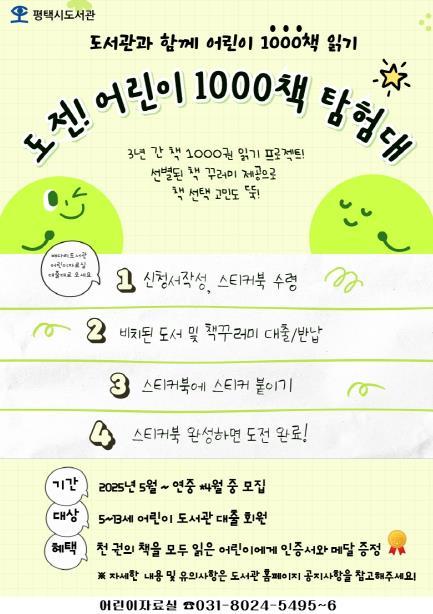 평택시도서관
도서관과 함께 어린이 1000책 읽기
도전! 어린이 1000책 탐험대
3년 간 책 1000권 읽기 프로젝트!
선별된 책 꾸러미 제공으로
책 선택 고민도 뚝!
배다리도서관
어린이자료실
대출대로 오세요
1 신청서작성, 스티커북 수령
2 비치된 도서 및 책꾸러미 대출/반납
3 스티커북에 스티커 붙이기
4 스티커북 완성하면 도전 완료!
기간 2025년 5월 ~ 연중 *4월 중 모집
대상 5~13세 어린이 도서관 대출 회원
혜택 천 권의 책을 모두 읽은 어린이에게 인증서와 메달 증정
※ 자세한 내용 및 유의사항은 도서관 홈페이지 공지사항을 참고해주세요!
어린이자료실 ☎031-8024-5495~6